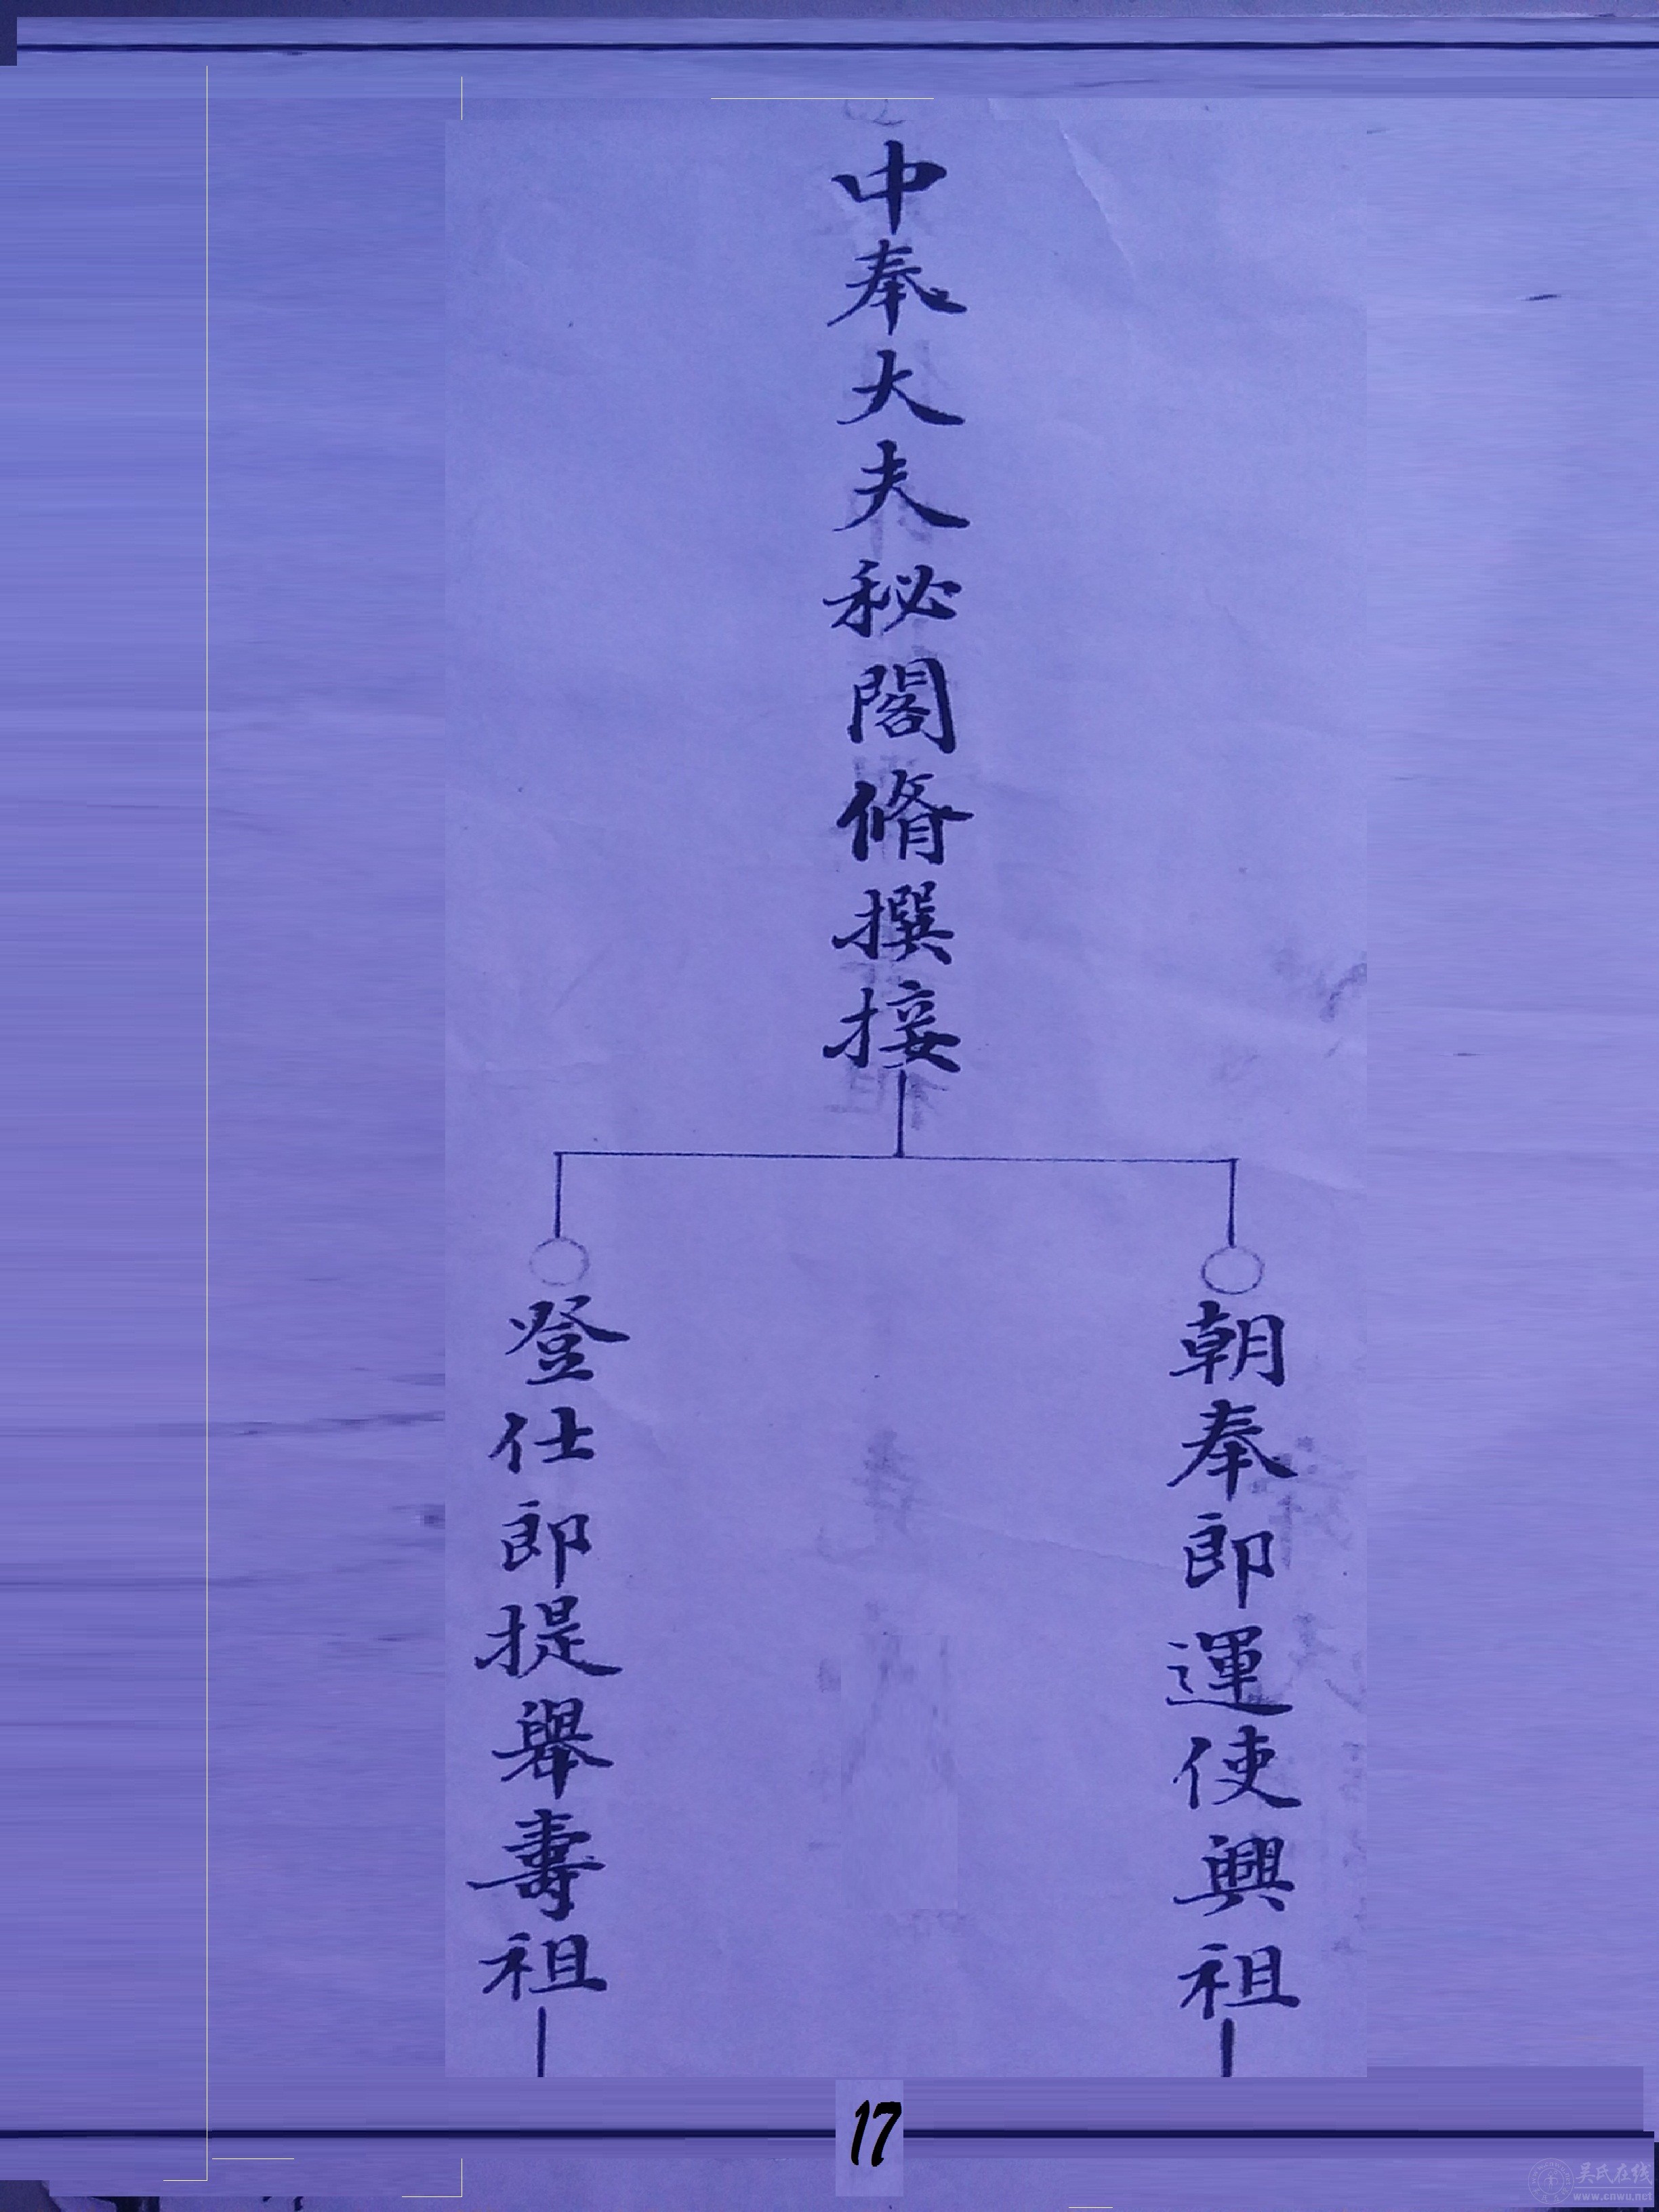 中奉大夫秘閣脩撰接
朝奉郎運使興祖
登仕郎提舉壽祖
17
吴氏在线
www.cnwu.net